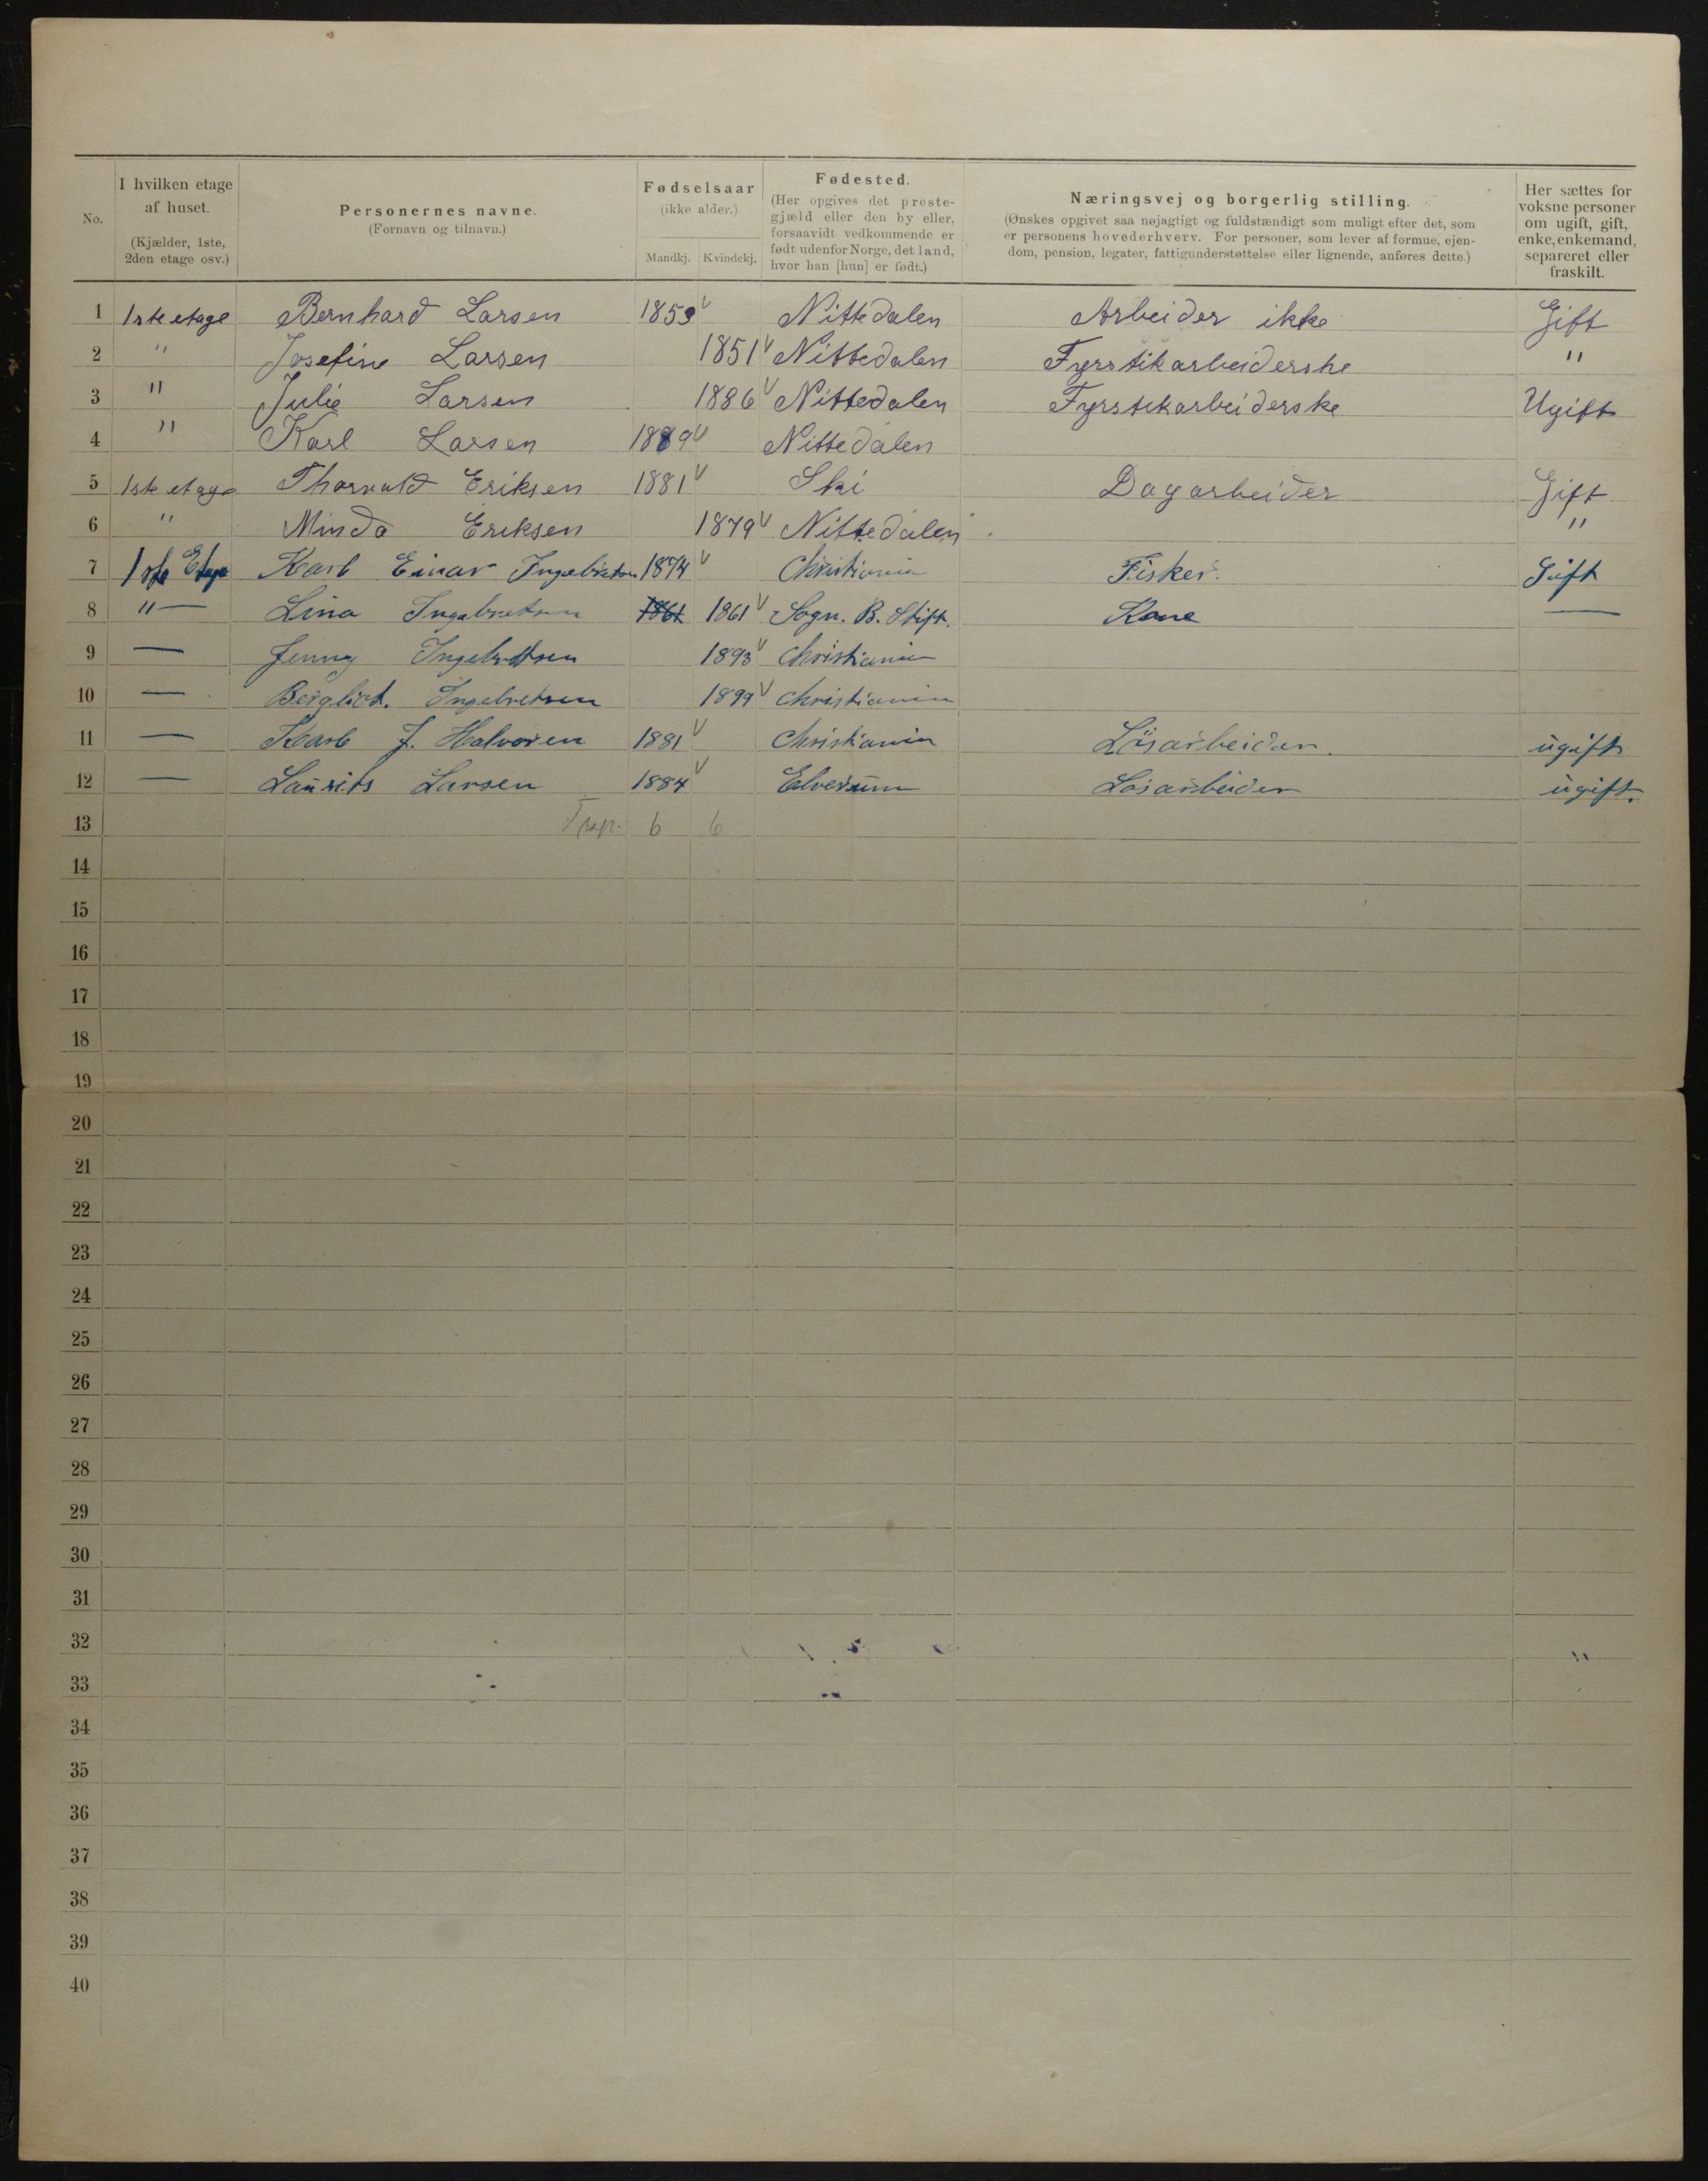 No. | I hvilken etage af huset. (Kjælder, 1ste, 2den etage osv.) | Personernes navne. (Fornavn og tilnavn.) | Fødselsaar (ikke alder.) Mandkj. | Kvindekj. | Fødested. (Her opgives det prestegjæld eller den by eller, forsaavidt vedkommende er født udenfor Norge, det land, hvor han [hun] er født.) | Næringsvej og borgerlig stilling. (Ønskes opgivet saa nøjagtigt og fuldstændigt som muligt efter det, som er personens hovederhverv. For personer, som lever af formue, ejendom, pension, legater, fattigunderstøttelse eller lignende, anføres dette.) | Her sættes for voksne personer om ugift, gift, enke, enkemand, separeret eller fraskilt.
1 1ste etage Bernhard Larsen 1853 v Nittedalen Arbeider ikke Gift
2 " Josefine Larsen 1851 v Nittedalen Fyrstikarbeiderske "
3 " Julie Larsen 1886 v Nittedalen Fyrstikarbeiderske Ugift
4 " Karl Larsen 1889 v Nittedalen
5 1ste etage Thorvald Eriksen 1881 v Ski Dagarbeider Gift
6 " Minda Eriksen 1879 v Nittedalen "
7 1ste Etage Karl Einar Ingebretsen 1874 v Christiania Fisker. Gift
8 "— Lina Ingebretsen 1861 1861 v Sogn. B. Stift. Kone —
9 — Jenny Ingebretsen 1893 v Christiania
10 — Bergliot. Ingebretsen 1899 v Christiania
11 — Karl J. Halvorsen 1881 v Christiania Lösarbeider. ugift
12 — Laurits Larsen 1884 v Elverum Losarbeider ugift.
13 6 6
14
15
16
17
18
19
20
21
22
23
24
25
26
27
28
29
30
31
32
33
34
35
36
37
38
39
40